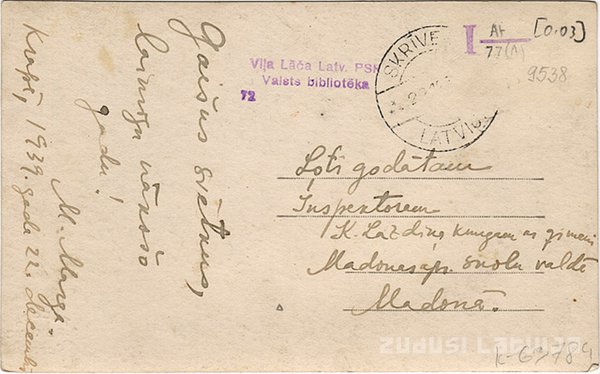 Gaišus svētkus,
laimīgu nākošo
gadu!
M. Marga.
1939. gada 22. decembrī
Viļa Lāča Latv. PSR
Valsts bibliotēka
72
SKRĪVE
LATVIJ
I AF
77(A)
[0.03]
9538
Ļoti godātam
Inspektorem
K. Lazdiņa kungam ar ģimeni
Madonas apr. skolu valdē
Madonā.
ZUDUSĪ LATVIJA